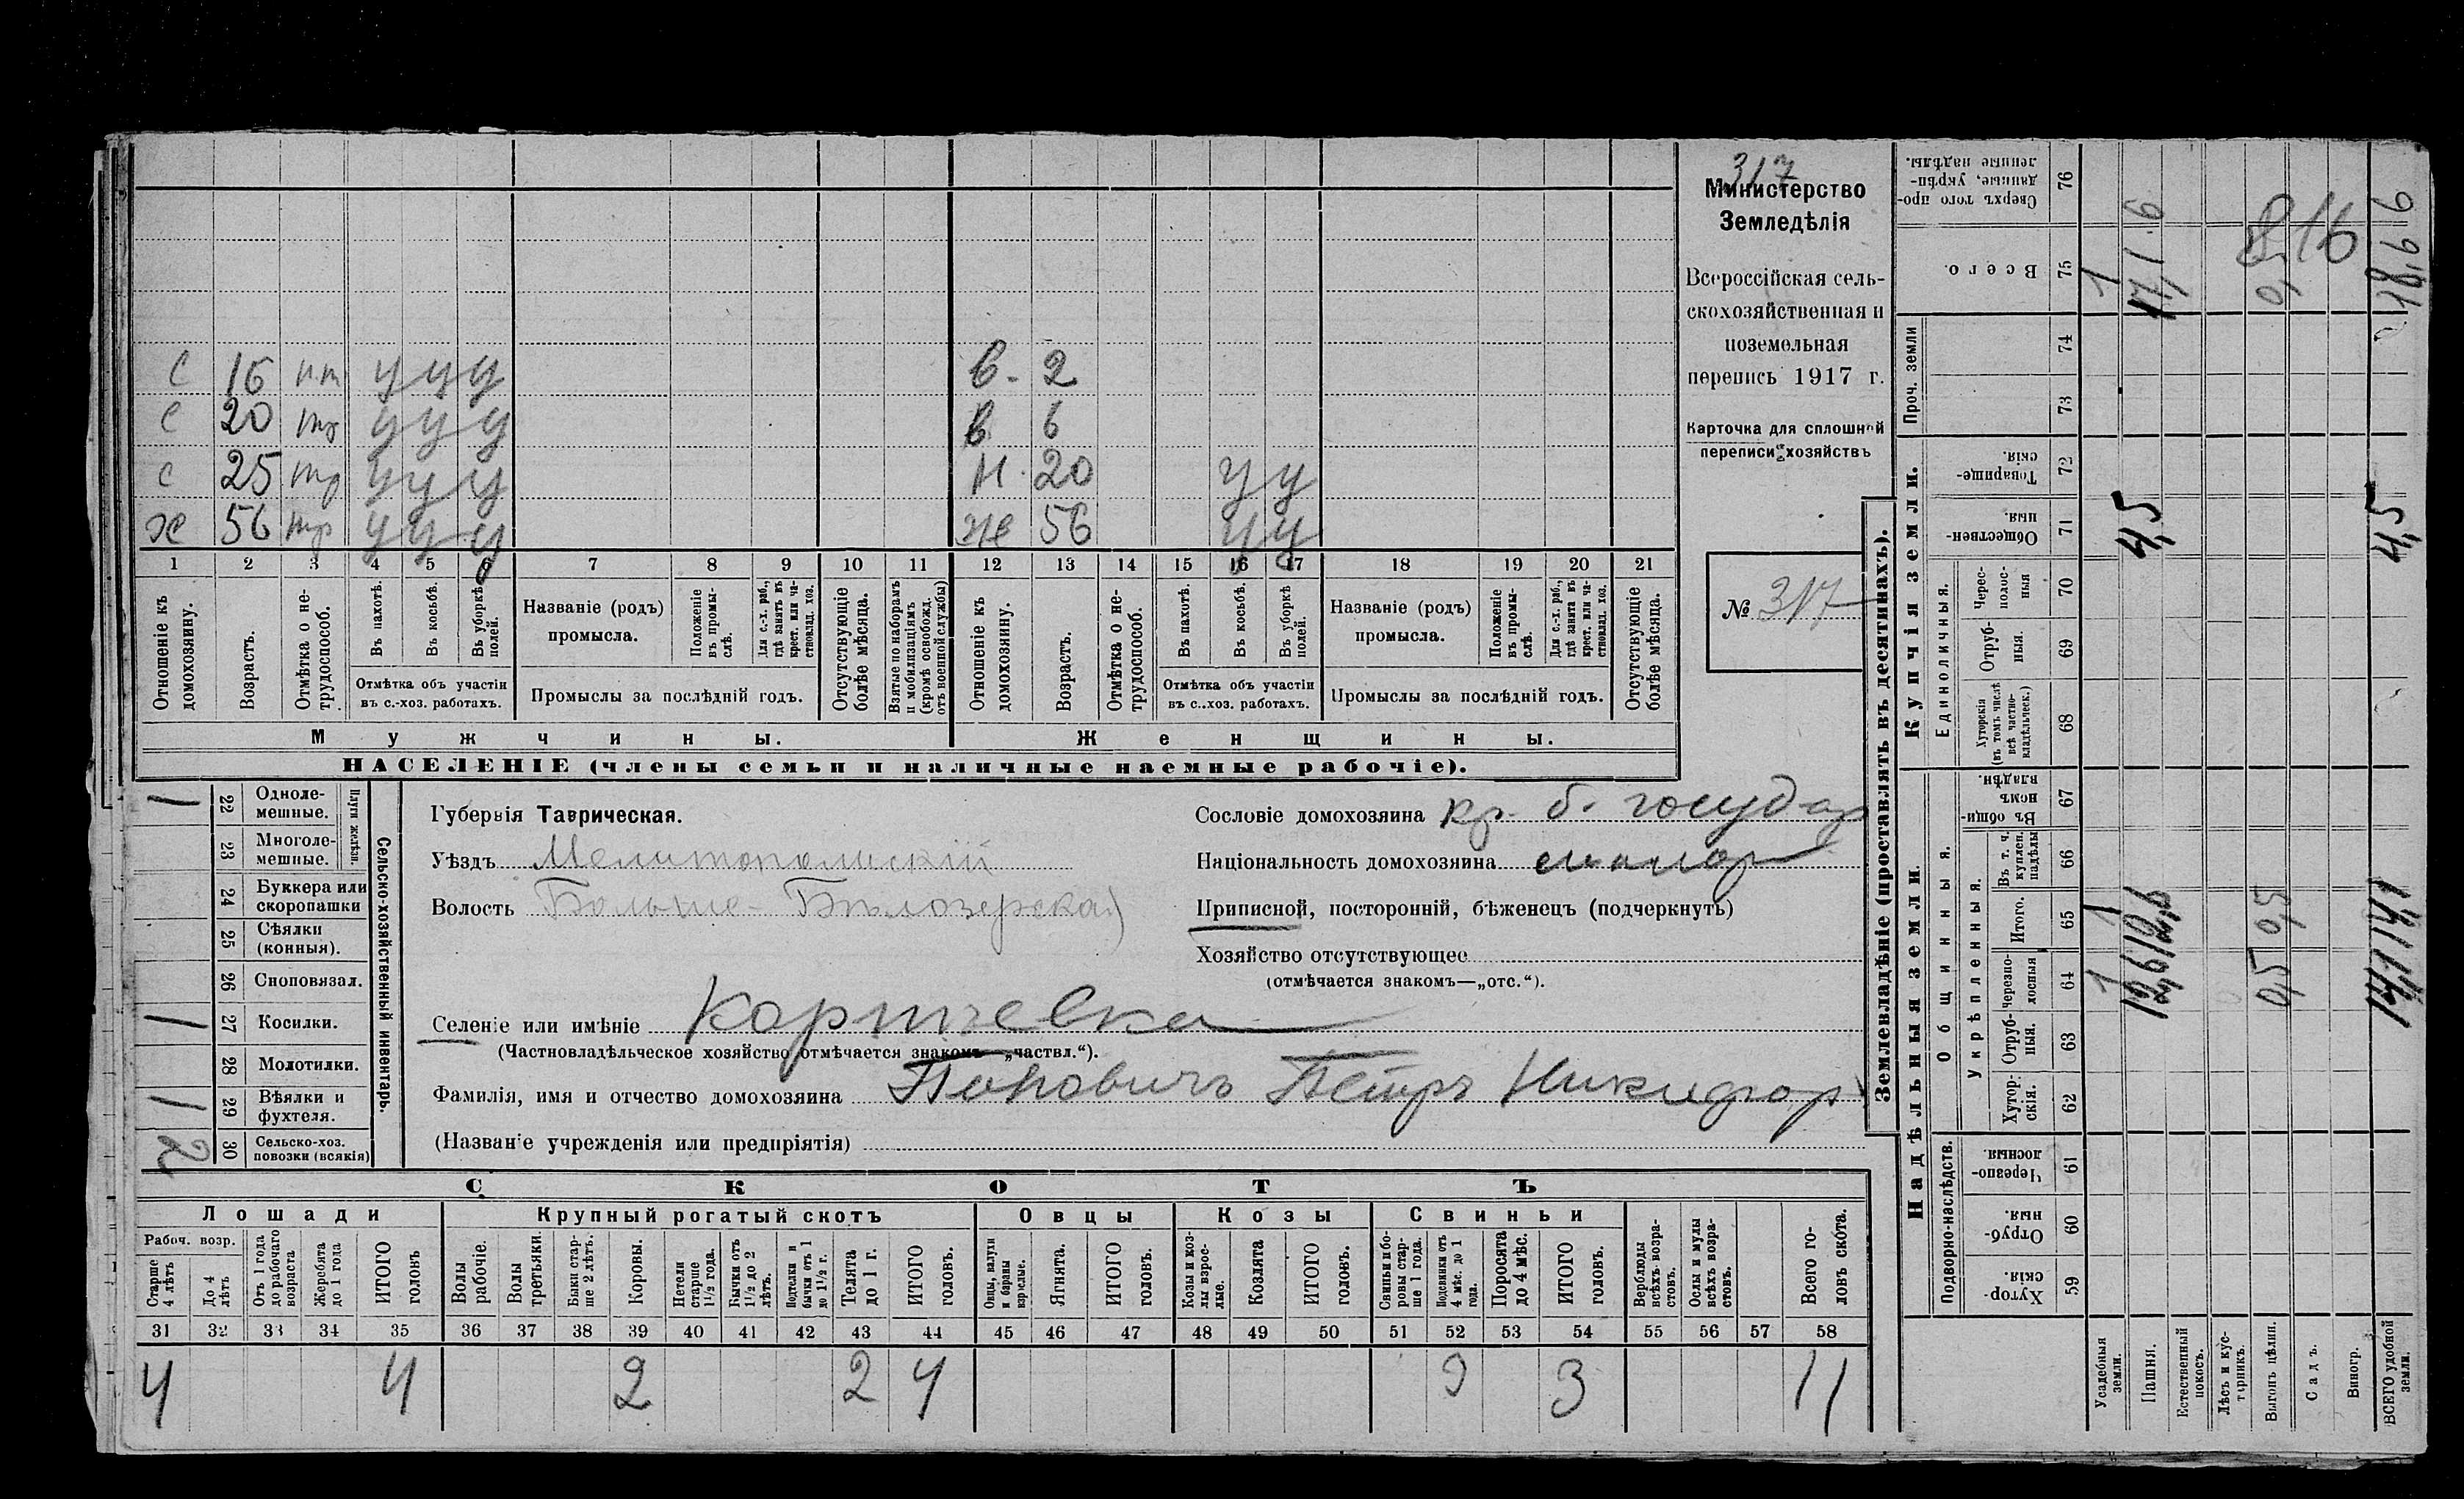 317
Министерство
Земледѣлія
Всероссійская сель-
скохозяйственная и
поземельная
перепись 1917 г.
Карточка для сплошной
переписи хозяйствъ
№ 317
с 16 п.т у у у
в. 2
с 20 тр у у у
в 6
с 25 тр у у у
н. 20 у у
х 56 тр у у у
ж 56 у у
1 2 3 4 5 6 7 8 9 10 11 12 13 14 15 16 17 18 19 20 21
Отношеніе къ домохозяину.
Возрастъ.
Отмѣтка о не-трудоспособ.
Въ пахотѣ.
Въ косьбѣ.
Въ уборкѣ полей.
Отмѣтка объ участіи
въ с.-хоз. работахъ.
Названіе (родъ)
промысла.
Положеніе въ промы-слѣ.
Для с.-х. раб., гдѣ занятъ въ крест. или ча-стновлад. хоз.
Промыслы за послѣдній годъ.
Отсутствующіе болѣе мѣсяца.
Взятые по наборамъ и мобилизаціямъ (кромѣ освобожд. отъ военной службы)
Отношеніе къ домохозяину.
Возрастъ.
Отмѣтка о не-трудоспособ.
Въ пахотѣ.
Въ косьбѣ.
Въ уборкѣ полей.
Отмѣтка объ участіи
въ с..хоз. работахъ.
Названіе (родъ)
промысла.
Положеніе въ промы-слѣ.
Для с.-х. раб., гдѣ занята въ крест. или ча-стновлад. хоз.
Промыслы за послѣдній годъ.
Отсутствующіе болѣе мѣсяца.
Мужчины.
Женщины.
НАСЕЛЕНІЕ (члены семьи и наличные наемные рабочіе).
Сельско-хозяйственный инвентарь.
Плуги желѣзн.
22 Одноле-мешные. 1
23 Многоле-мешные.
24 Буккера или скоропашки
25 Сѣялки (конныя).
26 Сноповязал.
27 Косилки. 1
28 Молотилки.
29 Вѣялки и фухтеля. 1
30 Сельско-хоз. повозки (всякія) 2
Губернія Таврическая.
Уѣздъ Мелитопольскій
Волость Больше-Бѣлозерская
Сословіе домохозяина кр. б. государ
Національность домохозяина малор
Приписной, посторонній, бѣженецъ (подчеркнуть)
Хозяйство отсутствующее
(отмѣчается знакомъ—„отс.“).
Селеніе или имѣніе
(Частновладѣльческое хозяйство отмѣчается знакомъ „частвл.“).
Фамилія, имя и отчество домохозяина Поповичъ Петръ Никифор
(Названіе учрежденія или предпріятія)
СКОТЪ
Лошади
Крупный рогатый скотъ
Овцы
Козы
Свиньи
Рабоч. возр.
Старше 4 лѣтъ
До 4 лѣтъ
Отъ 1 года до рабочаго возраста
Жеребята до 1 года
ИТОГО головъ
Волы рабочіе.
Волы третьяки.
Быки стар-ше 2 лѣтъ.
Коровы.
Нетели старше 1½ года.
Бычки отъ 1½ до 2 лѣтъ.
Подтелки и бычки отъ 1 до 1½ г.
Телята до 1 г.
ИТОГО головъ.
Овцы, валухи и бараны взрослые.
Ягнята.
ИТОГО головъ.
Козы и коз-лы взрос-лые.
Козлята
ИТОГО головъ.
Свиньи и бо-ровы стар-ше 1 года.
Подсвинки отъ 4 мѣс. до 1 года.
Поросята до 4 мѣс.
ИТОГО головъ.
Верблюды всѣхъ возра-стовъ.
Ослы и мулы всѣхъ возра-стовъ.
Всего го-ловъ скота.
31 32 33 34 35 36 37 38 39 40 41 42 43 44 45 46 47 48 49 50 51 52 53 54 55 56 57 58
4 4 2 2 4 3 3 11
Землевладѣніе (проставлять въ десятинахъ).
Надѣльныя земли.
Купчія земли.
Проч. земли
Подворно-наслѣдств.
Общинныя.
Укрѣпленныя.
Единоличныя.
Хутор-скія. 59
Отруб-ныя. 60
Черезпо-лосныя. 61
Хутор-скія. 62
Отруб-ныя. 63
Черезпо-лосныя 64
Итого. 65
Въ т. ч. куплен. надѣлы 66
Въ общин-номъ владѣн. 67
Хуторскія (въ томъ числѣ всѣ частно-владѣльческ.) 68
Отруб-ныя. 69
Черес-полос-ныя 70
Обществен-ныя. 71
Товарище-скія. 72
73
74
Всего. 75
Сверхъ того про-данные, укрѣп-ленные надѣлы. 76
Усадебныя земли. 1 1 1
Пашня. 12,6 12,6 4,5 17,1
Естественный покосъ.
Лѣсъ и кус-тарникъ.
Выгонъ цѣлин. 0,5 0,5 0,5
Садъ.
Виногр.
ВСЕГО удобной земли. 14,1 14,1 4,5 18,6
816